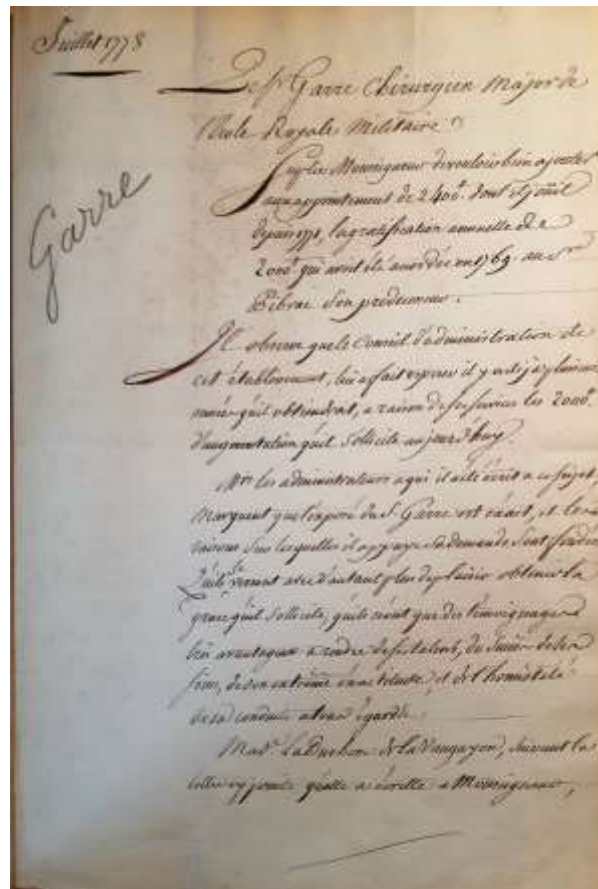 Juillet 1778
Le Sr. Garre Chirurgien Major de
l'École Royale Militaire
Garre
Suplie Monseigneur de vouloir bien ajouter
aux appointement de 2400tt. dont il jouit
depuis 1771, la gratification annuelle de
2000tt. qui avoit été accordée en 1769. au Sr
Bibrac son prédecesseur.
Il observe que le Conseil d'administration de
cet établissement, lui a fait esperer il y a déja plusieurs
années qu'il obtiendroit, a raison de ses services les 2000tt.
d'augmentation qu'il sollicite aujourd'huy.
Mrs les administrateurs a qui il a été écrit a ce sujet,
marquent que l'exposé du S. Garre est exact, et les
raisons sur lesquelles il appuye sa demande sont fondées
qu'ils verront avec d'autant plus de plaisir obtenir la
grace qu'il sollicite, qu'ils n'ont que des témoignages
très avantageux a rendre de ses talens, du succès de ses
soins, de son extrême exactitude, et de l'honnêteté
de sa conduite a tous égards.
Made. La Duchesse de la Vauguyon, suivant la
lettre cy jointe qu'elle a écritte a Monseigneur,